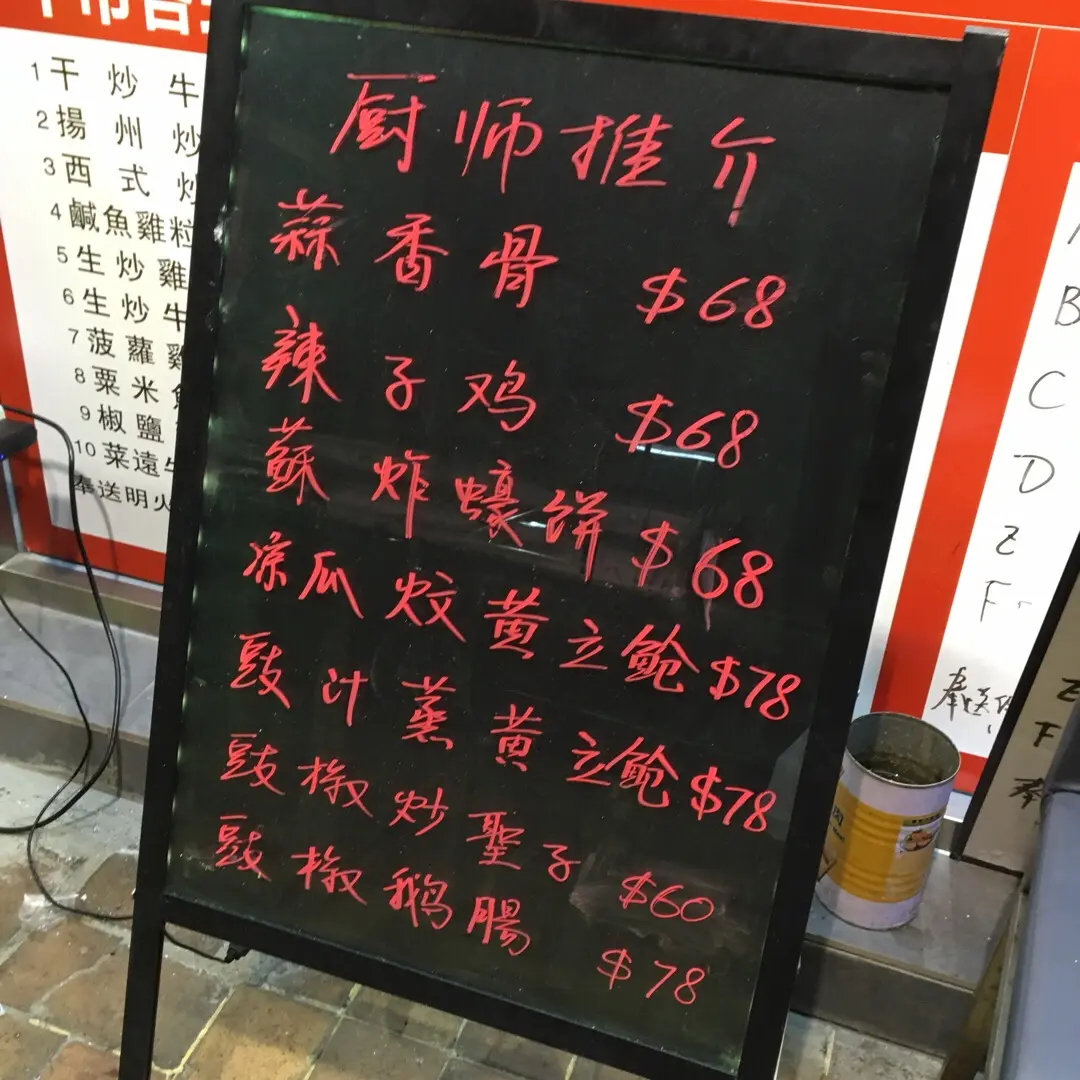 厨师推介
蒜香骨 $68
辣子鸡 $68
蘇炸蠔餅 $68
凉瓜炆黄立鮑 $78
豉汁蒸黄立鮑 $78
豉椒炒聖子 $60
豉椒鹅腸 $78
1 干炒牛
2 揚州炒
3 西式炒
4 鹹魚雞粒
5 生炒雞
6 生炒牛
7 菠蘿雞
8 粟米魚
9 椒鹽
10 菜遠牛
奉送明火
B
C
D
E
F
奉送
E
F
奉